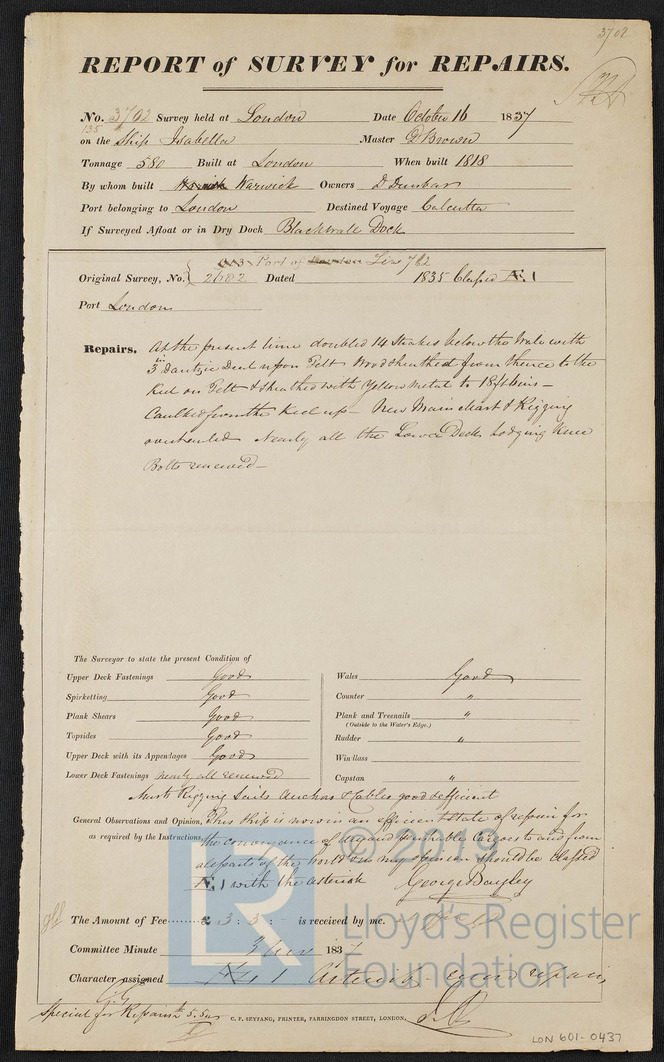 3702
REPORT of SURVEY for REPAIRS.
No. 3702 Survey held at London Date October 16 1837
135
on the Ship Isabella Master D Brown
Tonnage 580 Built at London When built 1818
By whom built Warwick Owners D Dunbar
Port belonging to London Destined Voyage Calcutta
If Surveyed Afloat or in Dry Dock Blackwall Dock
Port of London
Original Survey, No. 2682 Dated 1835 Classed Æ 1
Port London
Repairs. At the present time doubled 14 Strakes below the Wale with
3 in Dantzic Deal upon Felt Wood sheathed from thence to the
Keel on Felt & sheathed with Yellow Metal to 18 ft 6 ins –
Caulked from the Keel up – New Main Mast & Rigging
overhauled Nearly all the Lower Deck Lodging Knee
Bolts renewed –
The Surveyor to state the present Condition of
Upper Deck Fastenings Good
Spirketting Good
Plank Shears Good
Topsides Good
Upper Deck with its Appendages Good
Lower Deck Fastenings nearly all renewed
Wales Good
Counter "
Plank and Treenails "
(Outside to the Water's Edge.)
Rudder "
Windlass
Capstan "
Masts Rigging Sails Anchors & Cables good & efficient
General Observations and Opinion, This Ship is now in an efficient state of repair for
as required by the Instructions, the conveyance of dry and perishable cargoes to and from
all parts of the World & in my opinion should be classed
Æ 1 with the asterisk George Bayley
The Amount of Fee £ 3 : 3 : - is received by me.
Committee Minute 3 Nov 1837
Character assigned Æ 1 Asterisk
Special for Repairs £ 5.5
C. F. SEYFANG, PRINTER, FARRINGDON STREET, LONDON.
LON 601-0437
© 2019
Lloyd's Register
Foundation